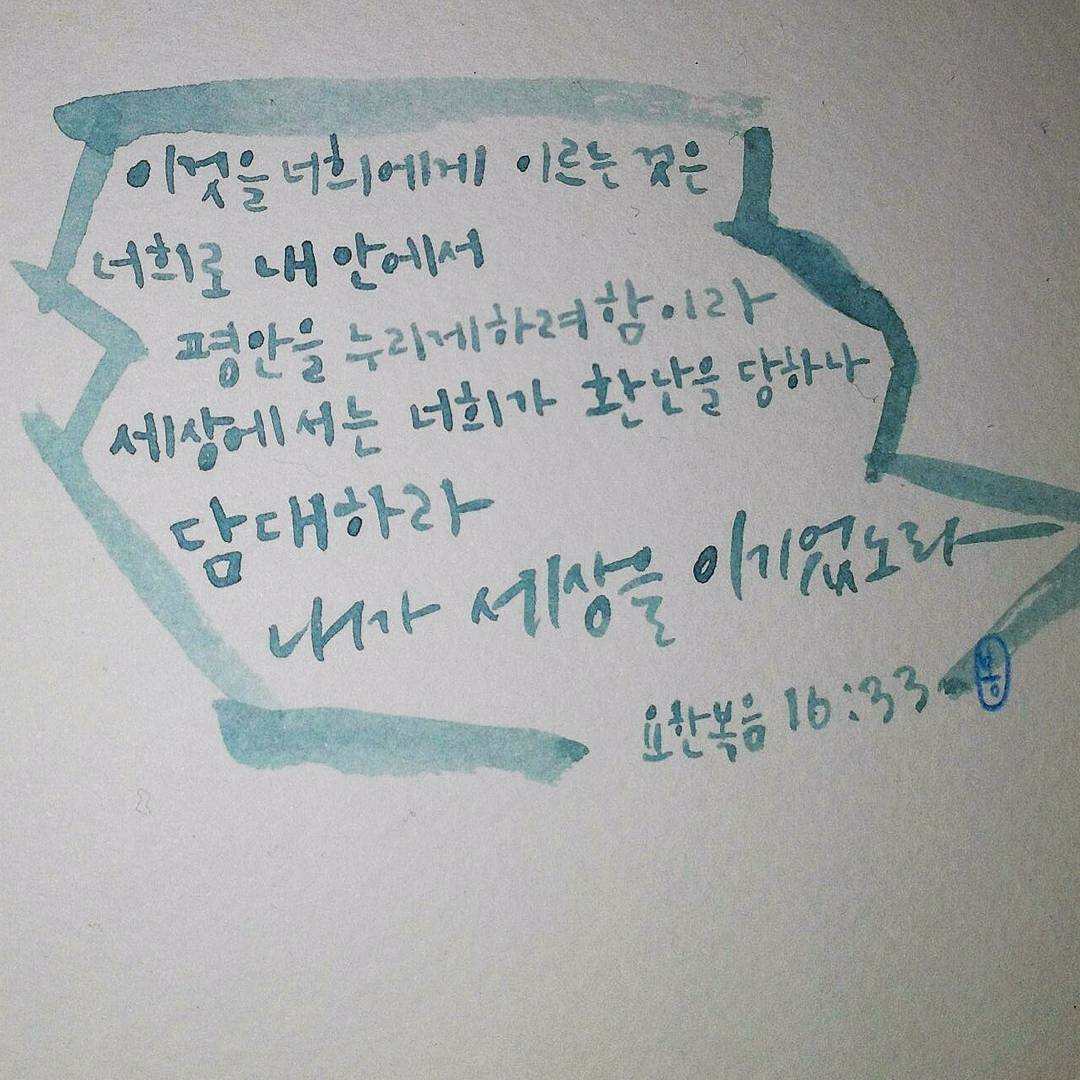 이것을 너희에게 이르는 것은
너희로 내 안에서
평안을 누리게하려함이라
세상에서는 너희가 환난을 당하나
담대하라
내가 세상을 이기었노라
요한복음 16:33